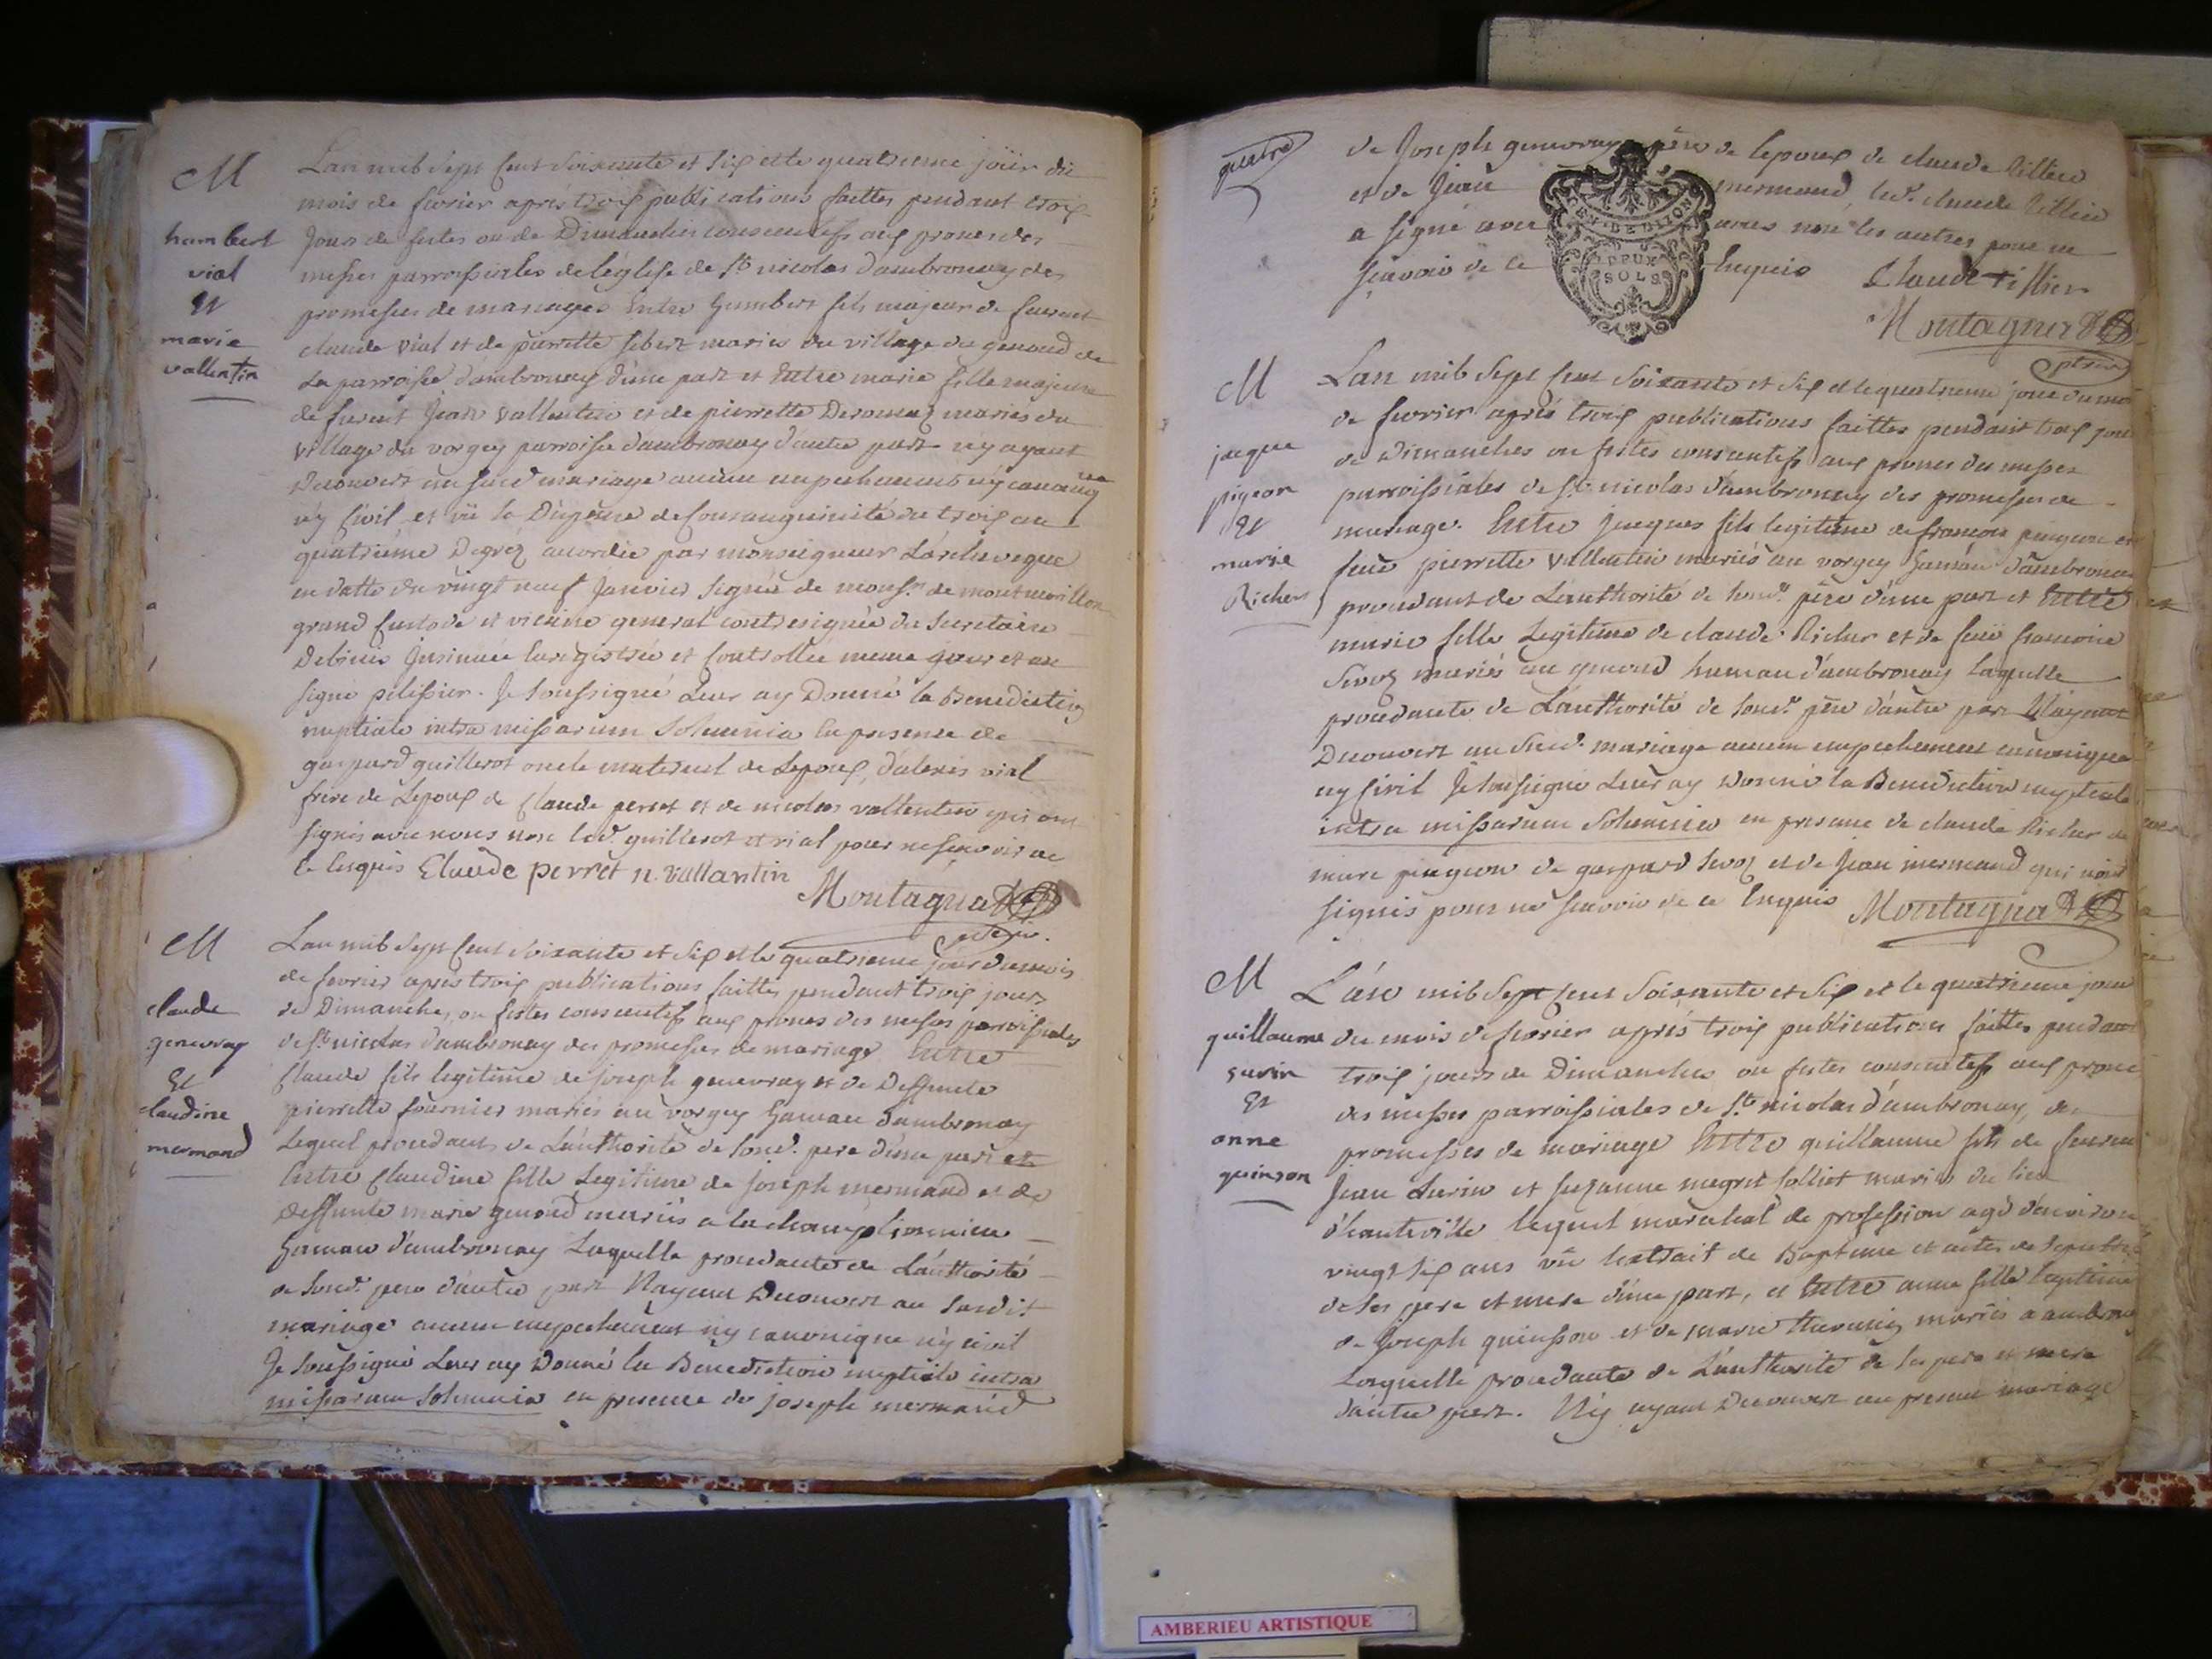 M
humbert
vial
Et
marie
vallentin
Lan mil sept cent soixante et six et le quatrieme jour du
mois de fevrier après trois publications faittes pendant trois
jours de festes ou de Dimanches consecutifs aux prones des
messes parroissiales de léglise de St nicolas d'ambronay des
promesses de mariages Entre humbert fils majeur de fuennt
claude vial et de pierrette mariés du village du genoud de
La parroisse d'ambronay d'une part et Entre marie fille majeure
de fuennt Jean vallentin et de pierrette mariés du
village du vorgey parroisse d'ambronay d'autre part n'y ayant
Decouvert au sud mariage aucun empechement n'y canonique
n'y Civil et vû la Dispense de Consanguinité du trois au
quatrième Degrez accordée par monseigneur L'archeveque
en datte du vingt neuf Janvier signée de monsr de montmorillon
grand Custode et vicaire general contresignée du secretaire
insinuée Enregistrée et Controllée meme jour et an
signé pelissier. Je soussigné Leur ay Donné la Benediction
nuptiale intra missarum solemnia En presence de
gaspard guillerot oncle maternel de Lepoux, d'alexis vial
frere de Lepoux de Claude perret et de nicolas vallentin qui ont
signés avec nous non led. guillerot et vial pour ne scavoir de
ce Enquis Claude perret n. vallantin
Montagnat
ptre
M
claude
genevray
Et
claudine
mermand
Lan mil sept cent soixante et six et le quatrieme jour du mois
de fevrier après trois publications faittes pendant trois jours
de Dimanches, ou festes consecutifs aux prones des messes parroissiales
de St nicolas d'ambronay des promesses de mariage Entre
Claude fils legitime de joseph genevray et de Deffunte
pierrette fournier mariés au vorgey hamau d'ambronay
Lequel procedant de L'authorité de sond. pere d'une part et
Entre Claudine fille Legitime de joseph mermand et de
deffunte marie genoud mariés a la
hamau d'ambronay Laquelle procedante de L'authorité
de sond. pere d'autre part Nayant Decouvert au susdit
mariage aucun empechement n'y canonique n'y civil
Je soussigné Leur ay Donné la Benediction nuptiale intra
missarum solemnia en presence de joseph mermand
quatre
de Joseph genevray père de lepoux de claude tillier
et de Jean mermand, led. claude tillier
a signé avec nous non les autres pour ne
scavoir de ce Enquis Claude tillier
GEN. DE DIJON
DEUX
SOLS
Montagnat
ptre
M
jacque
pigeon
Et
marie
Richer
Lan mil sept cent soixante et six et le quatrieme jour du moi
de fevrier après trois publications faittes pendant trois jour
de Dimanches ou festes consecutifs aux prones des messes
parroissiales de St nicolas d'ambronay des promesses de
mariage. Entre jacques fils legitime de francois pingeon et
feue pierrette vallentin mariés au vorgey hamau d'ambronay
procedant de L'authorité de sond. père d'une part et Entre
marie fille Legitime de claude Richer et de feue francoise
Sevoz mariés au genoud hamau d'ambronay Laquelle
procedante de L'authorité de sond. père d'autre part Nayant
Decouvert au sud. mariage aucun empechement canonique
ny Civil Je soussigné Leur ay Donné la Benediction nuptiale
intra missarum solemnia en presence de claude Richer de
pingeon de gaspard Sevoz et de Jean mermand qui n'ont
signés pour ne scavoir de ce Enquis Montagnat
M
guillaume
surin
Et
anne
quinson
L'an mil sept cent soixante et six et le quatrieme jour
du mois de fevrier après trois publications faittes pendant
trois jours de Dimanches ou festes consecutifs aux prone
des messes parroissiales de St nicolas d'ambronay, des
promesses de mariage Entre guillaume fils de feu
Jean Surin et suzanne mariés du lieu
d'hauteville lequel marechal de profession agé d'environ
vingt six ans vû lextrait de Bapteme et actes de sepulture
de ses pere et mere d'une part, et Entre anne fille legitime
de Joseph quinsson et de marie mariés a ambronay
Laquelle procedante de L'authorité de ses pere et mere
d'autre part. N'y ayant Decouvert au present mariage
AMBERIEU ARTISTIQUE